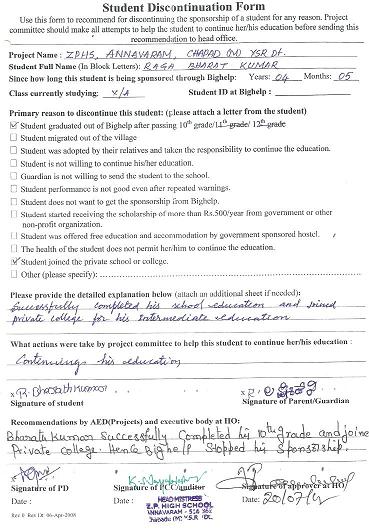 Student Discontinuation Form
Use this form to recommend for discontinuing the sponsorship of a student for any reason. Project
committee should make all attempts to help the student to continue her/his education before sending this
recommendation to head office.
Project Name : ZPHS, ANNAVARAM, CHAPAD (M) YSR Dt.
Student Full Name (In Block Letters): RAGA BHARAT KUMAR
Since how long this student is being sponsored through Bighelp: Years: 04 Months: 05
Class currently studying: X/A Student ID at Bighelp :
Primary reason to discontinue this student: (please attach a letter from the student)
Student graduated out of Bighelp after passing 10th grade/11th grade/ 12th grade
Student migrated out of the village
Student was adopted by their relatives and taken the responsibility to continue the education.
Student is not willing to continue his/her education.
Guardian is not willing to send the student to the school.
Student performance is not good even after repeated warnings.
Student does not want to get the sponsorship from Bighelp.
Student started receiving the scholarship of more than Rs.500/year from government or other
non-profit organization.
Student was offered free education and accommodation by government sponsored hostel.
The health of the student does not permit her/him to continue the education.
Student joined the private school or college.
Other (please specify):
Please provide the detailed explanation below (attach an additional sheet if needed):
Successfully completed his school education and joined
private college for his Intermediate education
What actions were take by project committee to help this student to continue her/his education :
Continuing his education
x R. Bharath Kumar x
Signature of student Signature of Parent/Guardian
Recommendations by AED(Projects) and executive body at HO:
Bharath Kumar Successfully Completed his 10th grade and joine
Private college. Hence Bighelp Stopped his Sponsorship.
Signature of PD Signature of PCC/auditor Signature of approver at HO
Date : Date : Date: 20/07/
HEAD MISTRESS
Z.P. HIGH SCHOOL
ANNAVARAM - 516 355
Chapadu (M) Y.S.R. (Dt.)
Rev 0 Rev Dt 06-Apr-2008